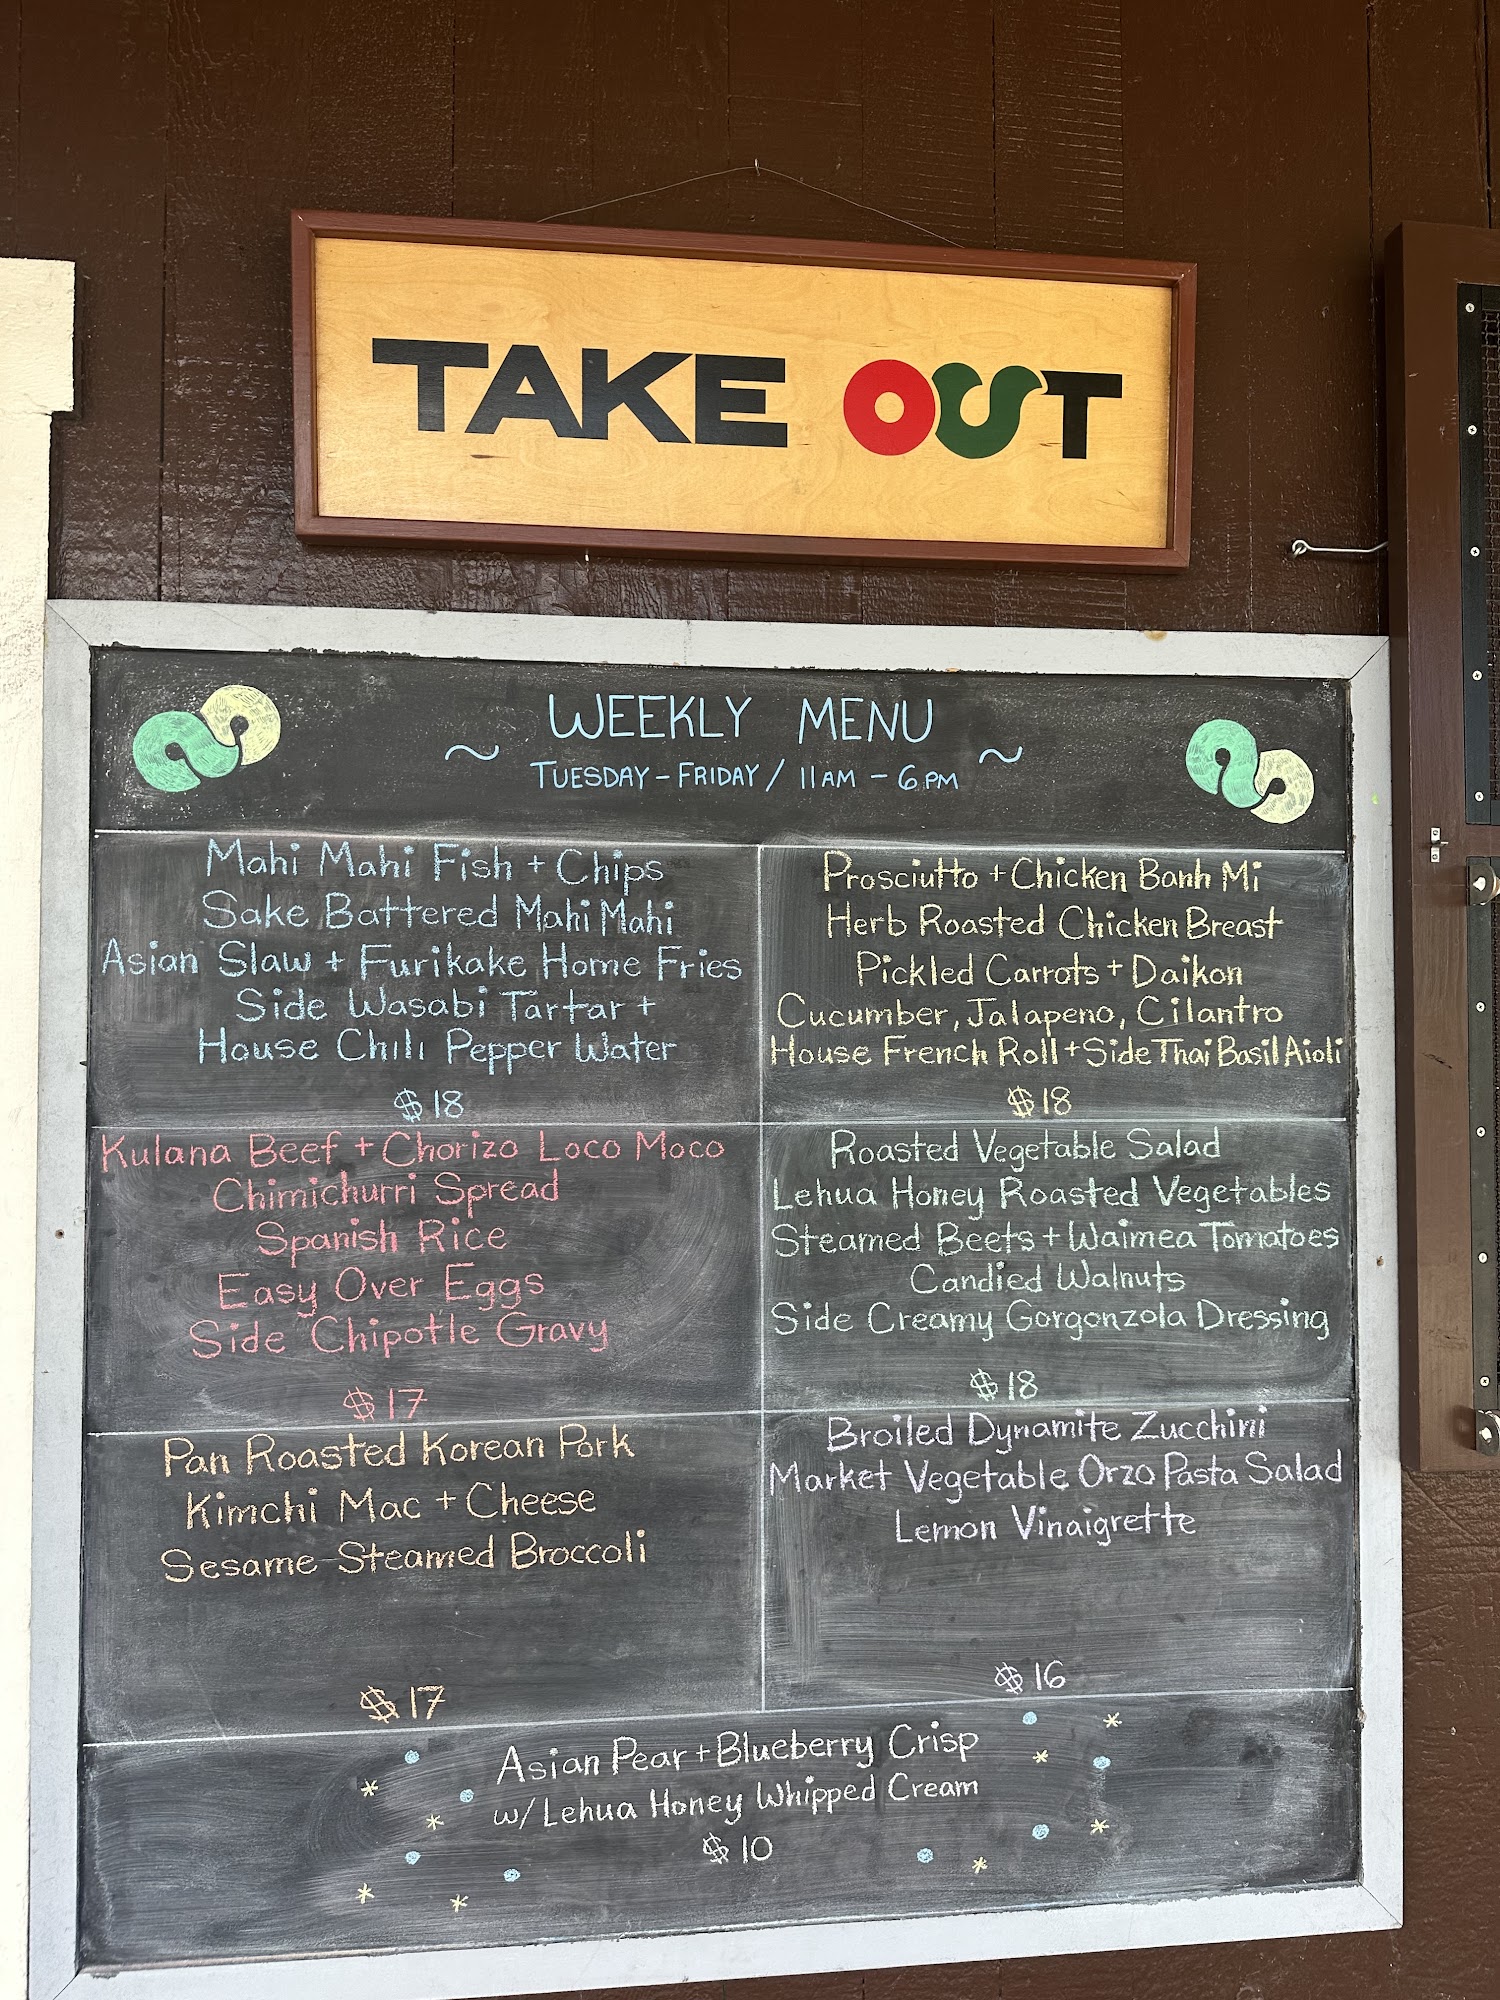 TAKE OUT
WEEKLY MENU
~ TUESDAY - FRIDAY / 11AM - 6PM ~
Mahi Mahi Fish + Chips
Sake Battered Mahi Mahi
Asian Slaw + Furikake Home Fries
Side Wasabi Tartar +
House Chili Pepper Water
$18
Prosciutto + Chicken Banh Mi
Herb Roasted Chicken Breast
Pickled Carrots + Daikon
Cucumber, Jalapeno, Cilantro
House French Roll + Side Thai Basil Aioli
$18
Kulana Beef + Chorizo Loco Moco
Chimichurri Spread
Spanish Rice
Easy Over Eggs
Side Chipotle Gravy
$17
Roasted Vegetable Salad
Lehua Honey Roasted Vegetables
Steamed Beets + Waimea Tomatoes
Candied Walnuts
Side Creamy Gorgonzola Dressing
$18
Pan Roasted Korean Pork
Kimchi Mac + Cheese
Sesame Steamed Broccoli
$17
Broiled Dynamite Zucchini
Market Vegetable Orzo Pasta Salad
Lemon Vinaigrette
$16
Asian Pear + Blueberry Crisp
w/ Lehua Honey Whipped Cream
$10